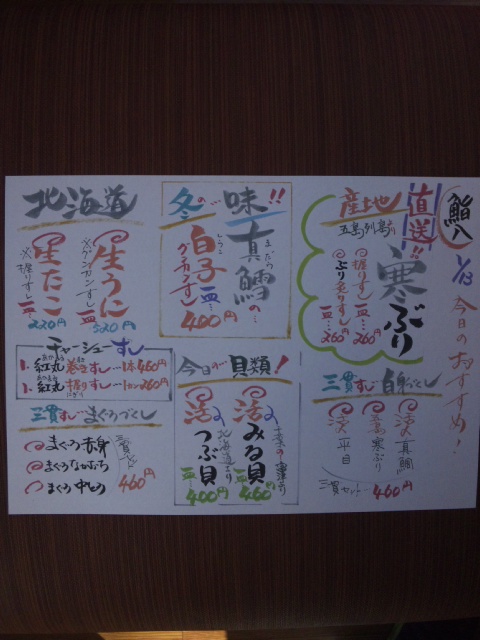 鮨八
1/13
今日のおすすめ!
産地直送!!
五島列島より
寒ぶり
握りすし一皿…260円
ぶり名かすし一皿…260円
三貫すし白身づくし
活〆真鯛
五島寒ぶり
活〆平目
三貫セット…460円
冬の…味!!
真鱈の…
まだら
白子
しらこ
グンカンすし
一皿…400円
今日の…貝類!
活〆みる貝
一皿460円
活〆つぶ貝
北海道より
一皿400円
北海道
生うに
※グンカンすし
一皿…520円
生たこ
※握りすし
一皿…220円
チャーシューすし
1. 紅丸巻きすし…1本460円
1. 紅丸握りすし…1カン260円
三貫すしまぐろづくし
まぐろ赤身
まぐろなかおち
まぐろ中とろ
三貫セット
460円